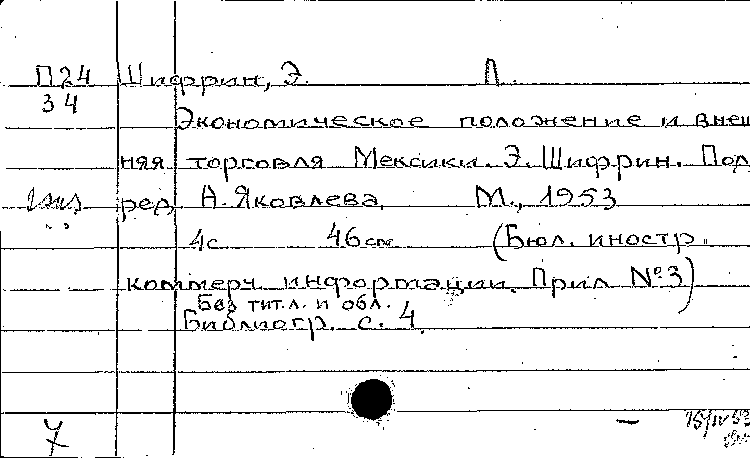 П24 Шифрин, Э. Л.
34
Экономическое положение и внеш
няя торговля Мексики. Э. Шифрин. Под
ред. А. Яковлева. М., 1953
4с. 46см. (Бюл. иностр.
коммерч. информации. Прил №3)
Без тит.л. и обл.
Библиогр. с. 4.
7 15/IV 53